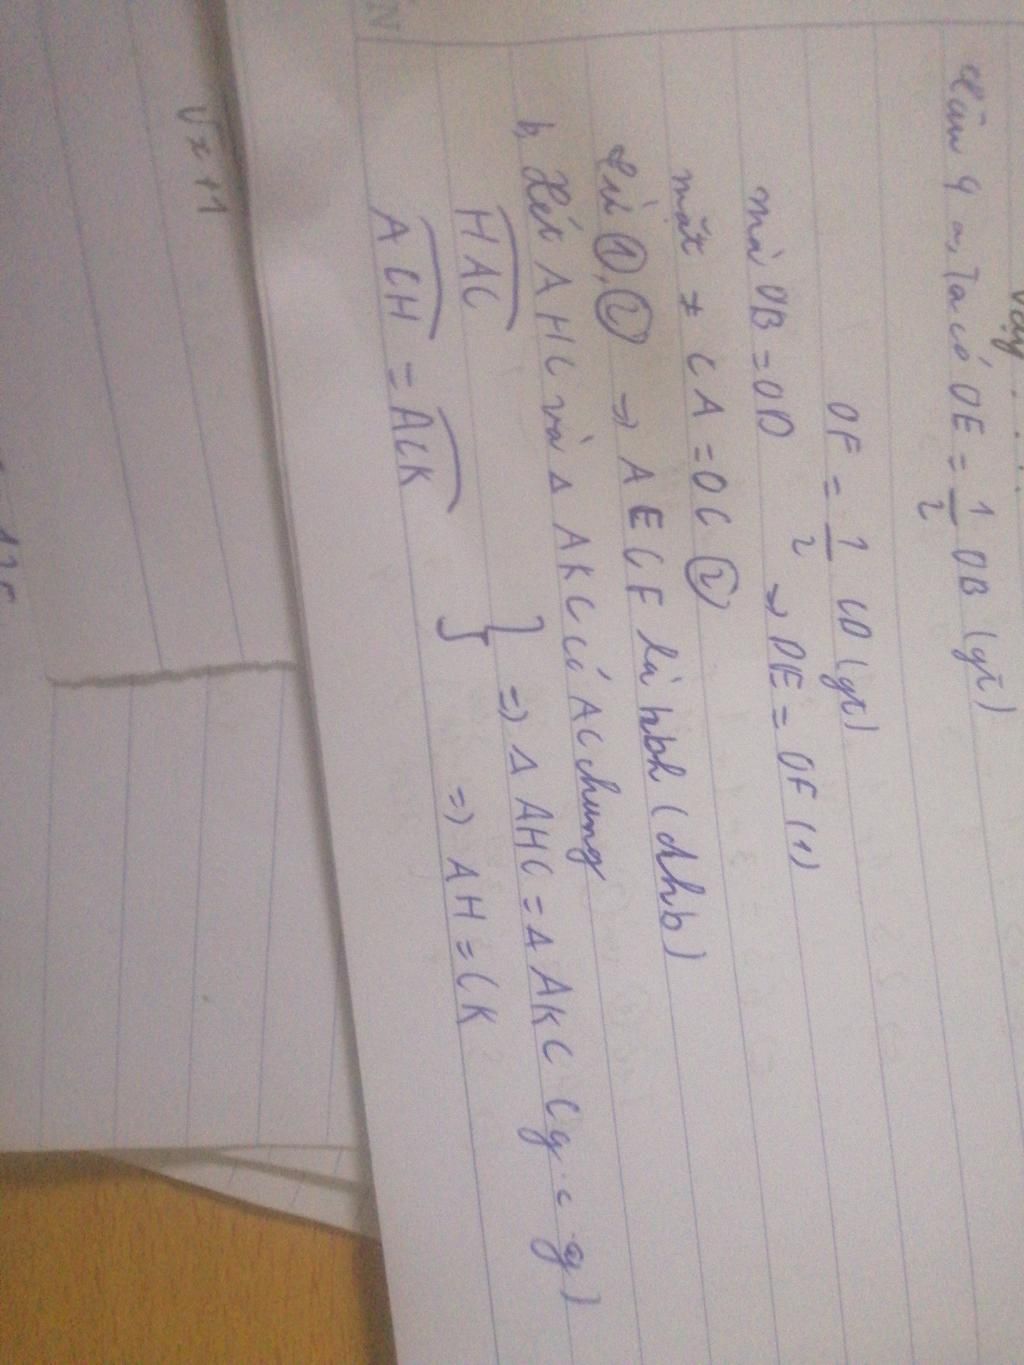 Vậy
Câu 4 a, Ta có OE = 1/2 OB (gt)
OF = 1/2 OD (gt)
mà OB = OD → OE = OF (1)
mặt ≠ OA = OC (2)
Từ (1), (2) → AECF là hbh (dhb)
b, Xét AHC và Δ AKC có AC chung
HAC } => Δ AHC = Δ AKC (g.c.g)
ACH = ACK => AH = CK
√x+1
N